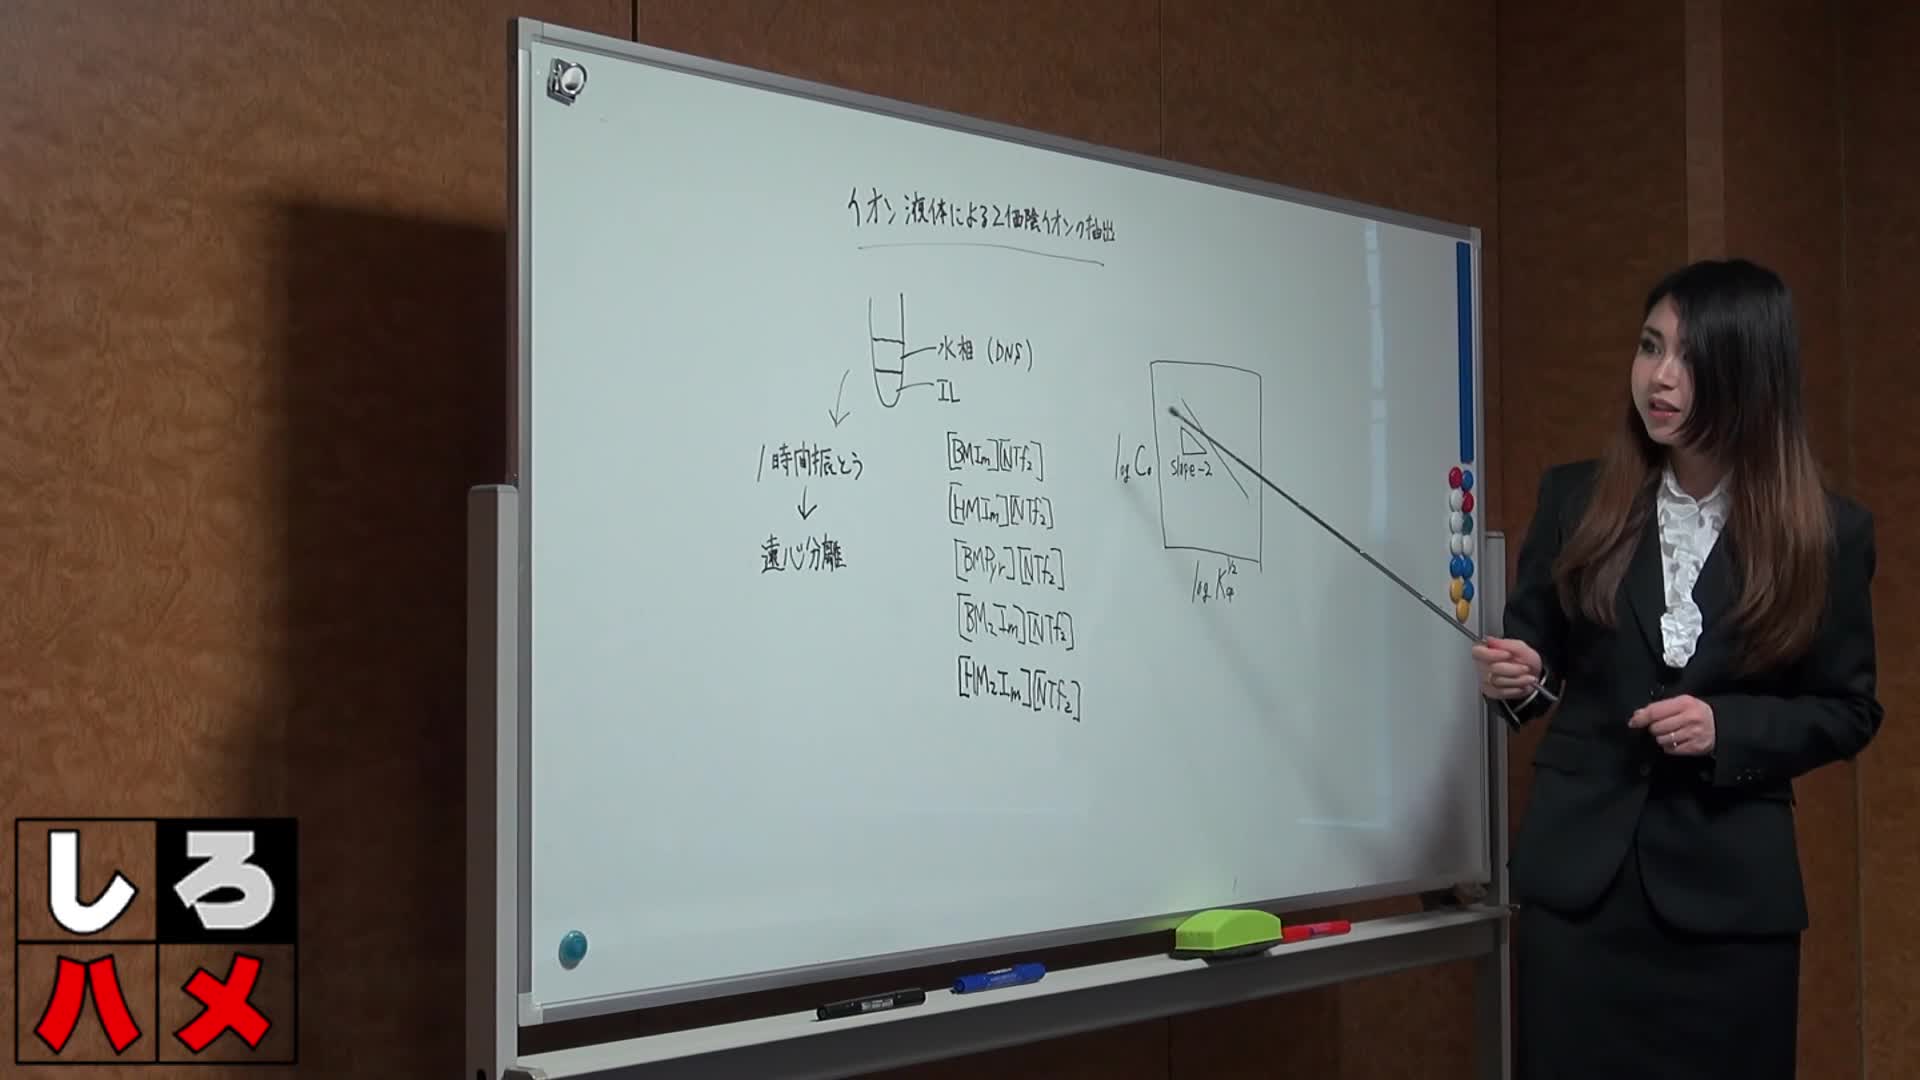 イオン液体による2価陰イオンの抽出
水相 (DNS)
IL
1時間振とう
遠心分離
[BMIm][NTf2]
[HMIm][NTf2]
[BMPyr][NTf2]
[BM2Im][NTf2]
[HM2Im][NTf2]
slope-2
log K^1/2
しろ
ハメ